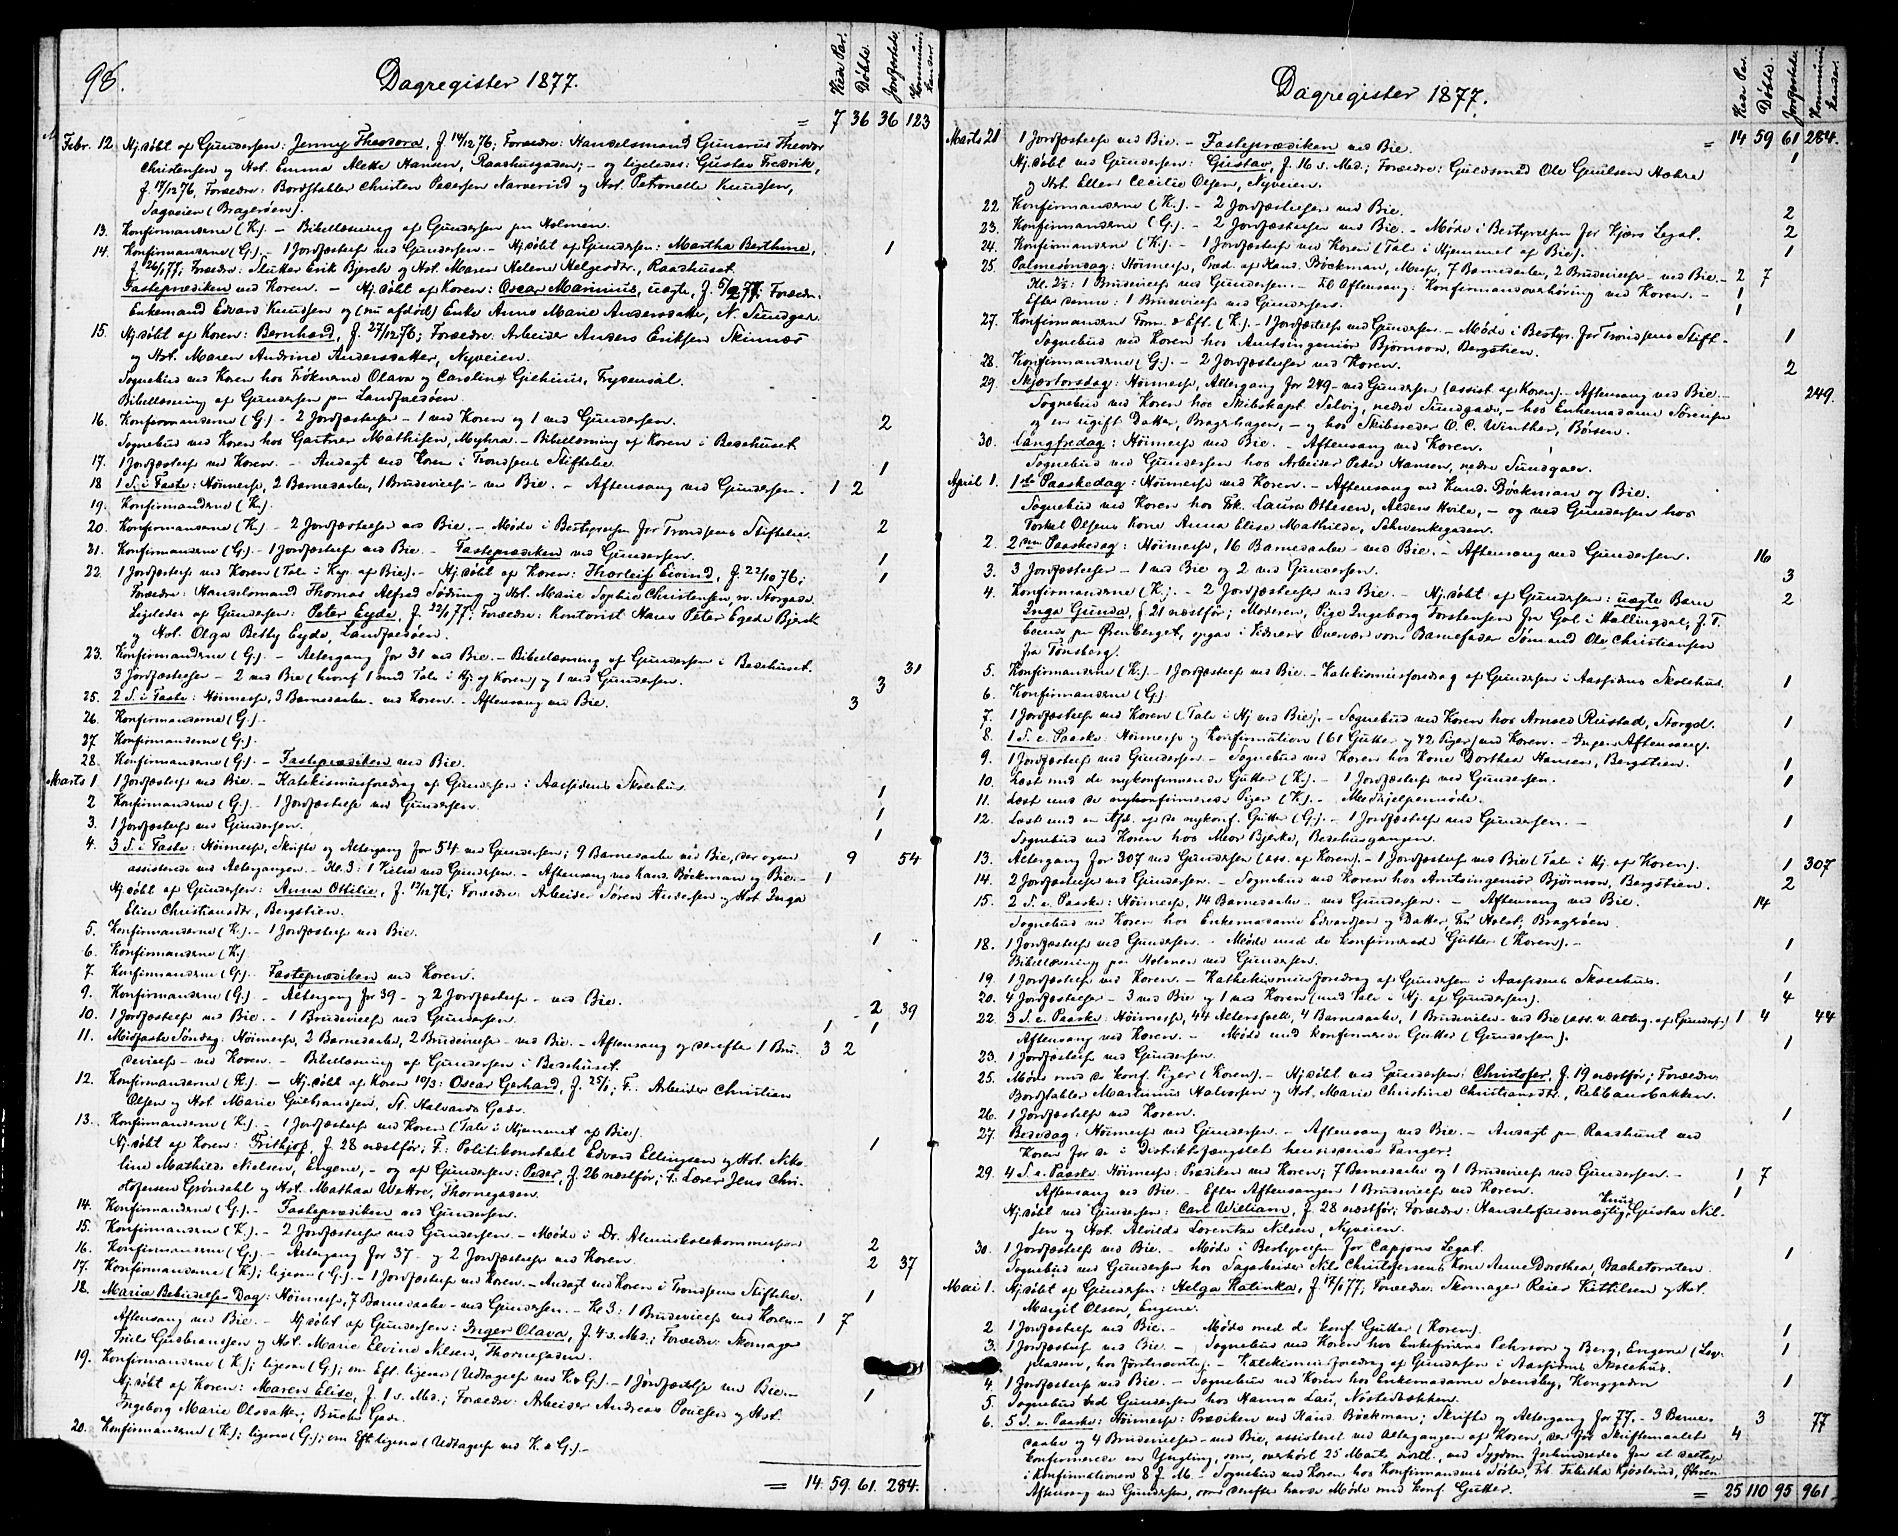 98.
Dagregister 1877.
Viede Par. Døbte. Jordfæstede. Kommunikander.
= 7 36 36 123
Febr. 12. Hj.døbt af Gundersen: Jenny Theodora, f. 14/12 76; Forældre: Handelsmand Gunerius Theodor
Christensen og Hst. Emma Alette Hansen, Raadhusgaden; - og ligeledes: Gustav Fredrik,
f. 17/12 76, Forældre: Bordstabler Christen Pedersen Narverud og Hst. Petronelle Knudsen,
Sagveien (Bragerøen).
13. Konfirmanderne (K.) - Bibellæsning af Gundersen paa Holmen.
14. Konfirmanderne (G.) - 1 Jordfæstelse ved Gundersen. - Hj.døbt af Gundersen: Martha Berthine, 1
f. 26/1 77; Forældre: Slutter Erik Bjerck og Hst. Maren Helene Helgesdtr., Raadhuset.
Fasteprædiken ved Koren. - Hj.døbt af Koren: Oscar Marinius, uægte, f. 5/2 77; Forældre:
Enkemand Edvard Knudsen og (nu afdød) Enke Anne Marie Andersdatter, N. Sundgd.
15. Hj.døbt af Koren: Bernhard, f. 27/12 76; Forældre: Arbeider Anders Eriksen Skinnes
og Hst. Maren Andrine Andersdatter, Nyveien.
Sognebud ved Koren hos Frøknerne Olava og Caroline Gichius, Frydendal.
Bibellæsning af Gundersen paa Landfaldøen.
16. Konfirmanderne (G.) - 2 Jordfæstelser - 1 ved Koren og 1 ved Gundersen. 2
Sognebud ved Koren hos Gartner Mathisen, Myhra. - Bibellæsning af Koren i Bedehuset.
17. 1 Jordfæstelse ved Koren. - Andagt ved Koren i Trondsens Stiftelse. 1
18 1 S. i Faste: Høimesse, 2 Barnedaabe, 1 Brudevielse - ved Bie. - Aftensang ved Gundersen. 1 2
19. Konfirmanderne (K.)
20. Konfirmanderne (K.) - 2 Jordfæstelser ved Bie. - Møde i Bestyrelsen for Trondsens Stiftelse. 2
21. Konfirmanderne (G.) - 1 Jordfæstelse ved Bie - Fasteprædiken ved Gundersen. 1
22. 1 Jordfæstelse ved Koren (Tale i Kap. af Bie). - Hj.døbt af Koren: Thorleif Eivind, f. 22/10 76; 1
Forældre: Handelsmand Thomas Alfred Søding og Hst. Marie Sophie Christensen, n. Storgade.
Ligeledes af Gundersen: Peter Eyde, f. 22/1 77; Forældre: Kontorist Hans Peter Egede Bjerck
og Hst. Olga Betsy Eyde, Landfaldøen.
23. Konfirmanderne (G.) - Altergang for 31 ved Bie. - Bibellæsning af Gundersen i Bedehuset. 31
3 Jordfæstelser - 2 ved Bie (hvoraf 1 med Tale i Hj. af Koren) og 1 ved Gundersen. 3
25. 2 S. i Faste: Høimesse, 3 Barnedaabe - ved Koren. - Aftensang ved Bie. 3
26. Konfirmanderne (G.) -
27 Konfirmanderne (G.).
28. Konfirmanderne (G.) - Fasteprædiken ved Bie.
Marts 1 1 Jordfæstelse ved Bie. - Katekismusforedrag af Gundersen i Aassidens Skolehus. 1
2 Konfirmanderne (G.) - 1 Jordfæstelse ved Gundersen. 1
3. 1 Jordfæstelse ved Gundersen. 1
4. 3 S. i Faste: Høimesse, Skrifte og Altergang for 54 ved Gundersen; 9 Barnedaabe ved Bie, der ogsaa 9 54
assisterede ved Altergangen. - Kl. 3: 1 Vielse ved Gundersen. - Aftensang ved Kand. Böckman og Bie. - 1
Hj.døbt af Gundersen: Anna Ottilie, f. 13/12 76; Forældre: Arbeider Søren Andersen og Hst. Inga
Elise Christiansdtr, Bergstien.
5. Konfirmanderne (K.) - 1 Jordfæstelse ved Bie. 1
6. Konfirmanderne (K.)
7. Konfirmanderne (G.). Fasteprædiken ved Koren.
9. Konfirmanderne (G.) - Altergang for 39 - og 2 Jordfæstelser - ved Bie. 2 39
10. 1 Jordfæstelse ved Bie. - 1 Brudevielse ved Gundersen. 1 1
11. Midfaste Søndag: Høimesse, 2 Barnedaabe, 2 Brudevielser - ved Bie. - Aftensang og derefter 1 Bru- 3 2
devielse - ved Koren. - Bibellæsning af Gundersen i Bedehuset.
12. Konfirmanderne (K.) - Hj.døbt af Koren 10/3: Oscar Gerhard, f. 25/1; F. Arbeider Christian
Olsen og Hst. Marie Gulbrandsen, St. Halvards Gade.
13. Konfirmanderne (K.) - 1 Jordfæstelse ved Koren (Tale i Hjemmet af Bie).
Hj.døbt af Koren: Frithjof, f. 28 næstfør; F: Politikonstabel Edvard Ellingsen og Hst. Niko- 1
line Mathilde Nielsen, Engene, - og af Gundersen: Peder, f. 26 næstfør; F. Lærer Jens Chri-
stofersen Grøndahl og Hst. Mathea Wettre, Thornegaden.
14. Konfirmanderne (G.). - Fasteprædiken ved Gundersen.
15. Konfirmanderne (K.) - 2 Jordfæstelser ved Gundersen. - Møde i Dr. Almuskolekommission 2
16. Konfirmanderne (G.) - Altergang for 37 - og 2 Jordfæstelser ved Koren. 2 37
17. Konfirmanderne (K.); ligesaa (G.). - 1 Jordfæstelse ved Koren. - Andagt ved Koren i Trondsens Stiftelse. 1
18. Mariæ Bebudelses Dag: Høimesse, 7 Barnedaabe - ved Gundersen. - Kl 3: 1 Brudevielse ved Koren. - 1 7
Aftensang ved Bie. - Hj.døbt af Gundersen: Inger Olava, f. 4 d. Md.; Forældre: Skomager
Troels Gudbrandsen og Hst. Marie Elvine Nilsen, Thornegaden.
19. Konfirmanderne (K.); ligesaa (G.); om Eft. ligesaa (Udtagelse ved K. & G.). - 1 Jordfæstelse ved Bie. -
Hj.døbt af Koren: Maren Elise, f. 1 d. Md.; Forældre: Arbeider Andreas Poulsen og Hst. 1
Ingeborg Marie Olsdatter, Buchs Gade.
20. Konfirmanderne (K.); ligesaa (G.); om Eft. ligesaa (Udtagelse ved K. & G.). -
= 14. 59. 61. 284.
Dagregister 1877.
Viede Par. Døbte. Jordfæstede. Kommunikander.
= 14 59 61 284.
Marts 21 1 Jordfæstelse ved Bie. - Fasteprædiken ved Bie. 1
Hj.døbt ved Gundersen: Gustav, f. 16 d. Md.; Forældre: Guldsmed Ole Gulsen Hæhre
og Hst. Ellen Cecilie Olsen, Nyveien.
22. Konfirmanderne (K.). - 2 Jordfæstelser ved Bie. 2
23. Konfirmanderne (G.) - 2 Jordfæstelser ved Bie. - Møde i Bestyrelsen for Kjærs Legat. 2
24. Konfirmanderne (K.) - 1 Jordfæstelse ved Koren (Tale i Hjemmet af Bie). 1
25. Palmesøndag: Høimesse, Præd. af Kand. Böckman, Messe, 7 Barnedaabe, 2 Brudevielser - ved Bie. - 2 7
Kl. 2½: 1 Brudevielse ved Gundersen. - Til Aftensang: Konfirmandoverhøring ved Koren. - 1
Efter samme: 1 Brudevielse ved Gundersen. 1
27. Konfirmanderne Form. & Eft. (K.). - 1 Jordfæstelse ved Gundersen. - Møde i Bestyr. for Trondsens Stift. 1
Sognebud ved Koren hos Amtsingeniør Bjørnson, Bergstien.
28. Konfirmanderne (G.) - 2 Jordfæstelser ved Koren. 2
29. Skjærtorsdag: Høimesse, Altergang for 249 - ved Gundersen (assist. af Koren). - Aftensang ved Bie. - 249.
Sognebud ved Koren hos Skibskapt. Selvig, nedre Sundgade, - hos Enkemadame Sørensen
og en ugift Datter, Bragehagen, - og hos Skibsreder O. C. Winther, Børsen.
30. Langfredag: Høimesse ved Bie. - Aftensang ved Koren.
Sognebud ved Gundersen hos Arbeider Peter Hansen, nedre Sundgade.
April 1. 1ste Paaskedag: Høimesse ved Koren. - Aftensang ved Kand. Böckman og Bie.
Sognebud ved Koren hos Frk. Laura Ottesen, Alders Hvile, - og ved Gundersen hos
Torkel Olsens Kone Anna Elise Mathilde, Schwenkegaden.
2. 2den Paaskedag: Høimesse, 16 Barnedaabe - ved Bie. - Aftensang ved Gundersen. 16
3. 3 Jordfæstelser - 1 ved Bie og 2 ved Gundersen. 3
4. Konfirmanderne (K.). - 2 Jordfæstelser ved Bie. - Hj.døbt af Gundersen: uægte Barn 2
Inga Gunda, f. 21 næstfør; Moderen, Pige Ingeborg Torstensen fra Gol i Hallingdal, f. T.
boende paa Ørenberget, opgav i Vidners Overvær som Barnefader Sømand Ole Christiansen
fra Tønsberg.
5. Konfirmanderne (K.). - 1 Jordfæstelse ved Bie - Katekismusforedrag af Gundersen i Aassidens Skolehus. 1
6. Konfirmanderne (G.)
7. 1 Jordfæstelse ved Koren (Tale i Hj. ved Bie). - Sognebud ved Koren hos Arnold Rustad, Storgd. 1
8. 1 S. e. Paaske: Høimesse og Konfirmation (61 Gutter og 42 Piger) ved Koren. - Ingen Aftensang.
9. 1 Jordfæstelse ved Gundersen. - Sognebud ved Koren hos Kone Dorthea Hansen, Bergstien. 1
10. Læst med de nykonfirmerede Gutter (K.). - 1 Jordfæstelse ved Gundersen. 1
11. Læst med de nykonfirmerede Piger (K.). - Medhjelpermøde.
12. Læst med en Afd. af de nykonf. Gutter (G.). - 1 Jordfæstelse ved Gundersen. - 1
Sognebud ved Koren hos Mdr Bjerke, Bedehusgangen.
13. Altergang for 307 ved Gundersen (ass. af Koren). - 1 Jordfæstelse ved Bie (Tale i Hj. af Koren). 1 307
14. 2 Jordfæstelser ved Gundersen. - Sognebud ved Koren hos Amtsingeniør Bjørnson, Bergstien. 2
15. 2 S. e. Paaske: Høimesse, 14 Barnedaabe - ved Gundersen. - Aftensang ved Bie. 14
Sognebud ved Koren hos Enkemadame Edvardsen og Datter, Fru Holst, Bragerøen.
18. 1 Jordfæstelse ved Gundersen. - Møde med de konfirmerede Gutter (Koren). - 1
Bibellæsning paa Holmen ved Gundersen.
19. 1 Jordfæstelse ved Koren. - Kathekismusforedrag af Gundersen i Aassidens Skolehus. 1
20. 4 Jordfæstelser - 3 ved Bie og 1 ved Koren (med Tale i Hj. af Gundersen). 4
22. 3 S. e. Paaske: Høimesse, 44 Altersfolk, 4 Barnedaabe, 1 Brudevielse - ved Bie (ass. v. Alterg. af Gunders.) 1 4 44
Aftensang ved Koren. - Møde med konfirmerede Gutter (Gundersen).
23. 1 Jordfæstelse ved Gundersen. 1
25. Møde med de konf. Piger (Koren). - Hj.døbt ved Gundersen: Christofer, f. 19 næstfør; Forældre:
Bordstabler Martinius Halvorsen og Hst. Marie Christine Christiansdtr., Rebbansbakken.
26. 1 Jordfæstelse ved Koren. 1
27. Bededag: Høimesse ved Gundersen. - Aftensang ved Bie. - Andagt paa Raadhuset ved
Koren for de i Distriktsfængslet hensiddende Fanger.
29. 4 S. e. Paaske: Høimesse: Prædiken ved Koren; 7 Barnedaabe og 1 Brudevielse ved Gundersen. - 1 7
Aftensang ved Bie. - Efter Aftensangen 1 Brudevielse ved Koren. 1
Hj.døbt ved Gundersen: Carl William, f. 28 næstfør; Forældre: Handelsfuldmægtig Knud Gustav Nil-
sen og Hst. Alvilde Lorentze Nilsen, Nyveien.
30. 1 Jordfæstelse ved Bie. - Møde i Bestyrelsen for Cappens Legat. 1
Sognebud ved Gundersen hos Sagarbeider Nils Christofersens Kone Anne Dorothea, Bachetomten.
Mai 1. Hj.døbt af Gundersen: Helga Katinka, f. 17/1 77; Forældre: Skomager Reier Kittilsen og Hst.
Margit Olsen, Engene.
2 1 Jordfæstelse ved Bie. - Møde med de konf. Gutter (Koren). 1
3. 1 Jordfæstelse ved Bie - Sognebud ved Koren hos Enkefruerne Pehrson og Berg, Engene (Løv-
plassen, hos førstnævnte). - Katekismusforedrag af Gundersen i Aassidens Skolehus. 1
4. 1 Jordfæstelse ved Bie. - Sognebud ved Koren hos Enkemadame Svendsby, Konggaden 1
5. Sognebud ved Gundersen hos Hanna Lau, Nøstedbakken.
6. 5 S. e. Paaske: Høimesse: Prædiken ved Kand. Böckman; Skrifte og Altergang for 77. - 3 Barne- 3 77
daabe og 4 Brudevielser - ved Bie, assisteret ved Altergangen af Koren, der før Skriftemaalet 4
konfirmerede en Yngling, som, overhørt 25 Marts sidstl., ved Sygdom forhindredes fra at deltage
i Konfirmationen 8 f. M. - Sognebud ved Koren hos Konfirmandens Søster, Frk. Tabitha Kjøsterud, Øhren
Aftensang ved Gundersen, som derefter havde Møde med konf. Gutter.
= 25 110 95 961